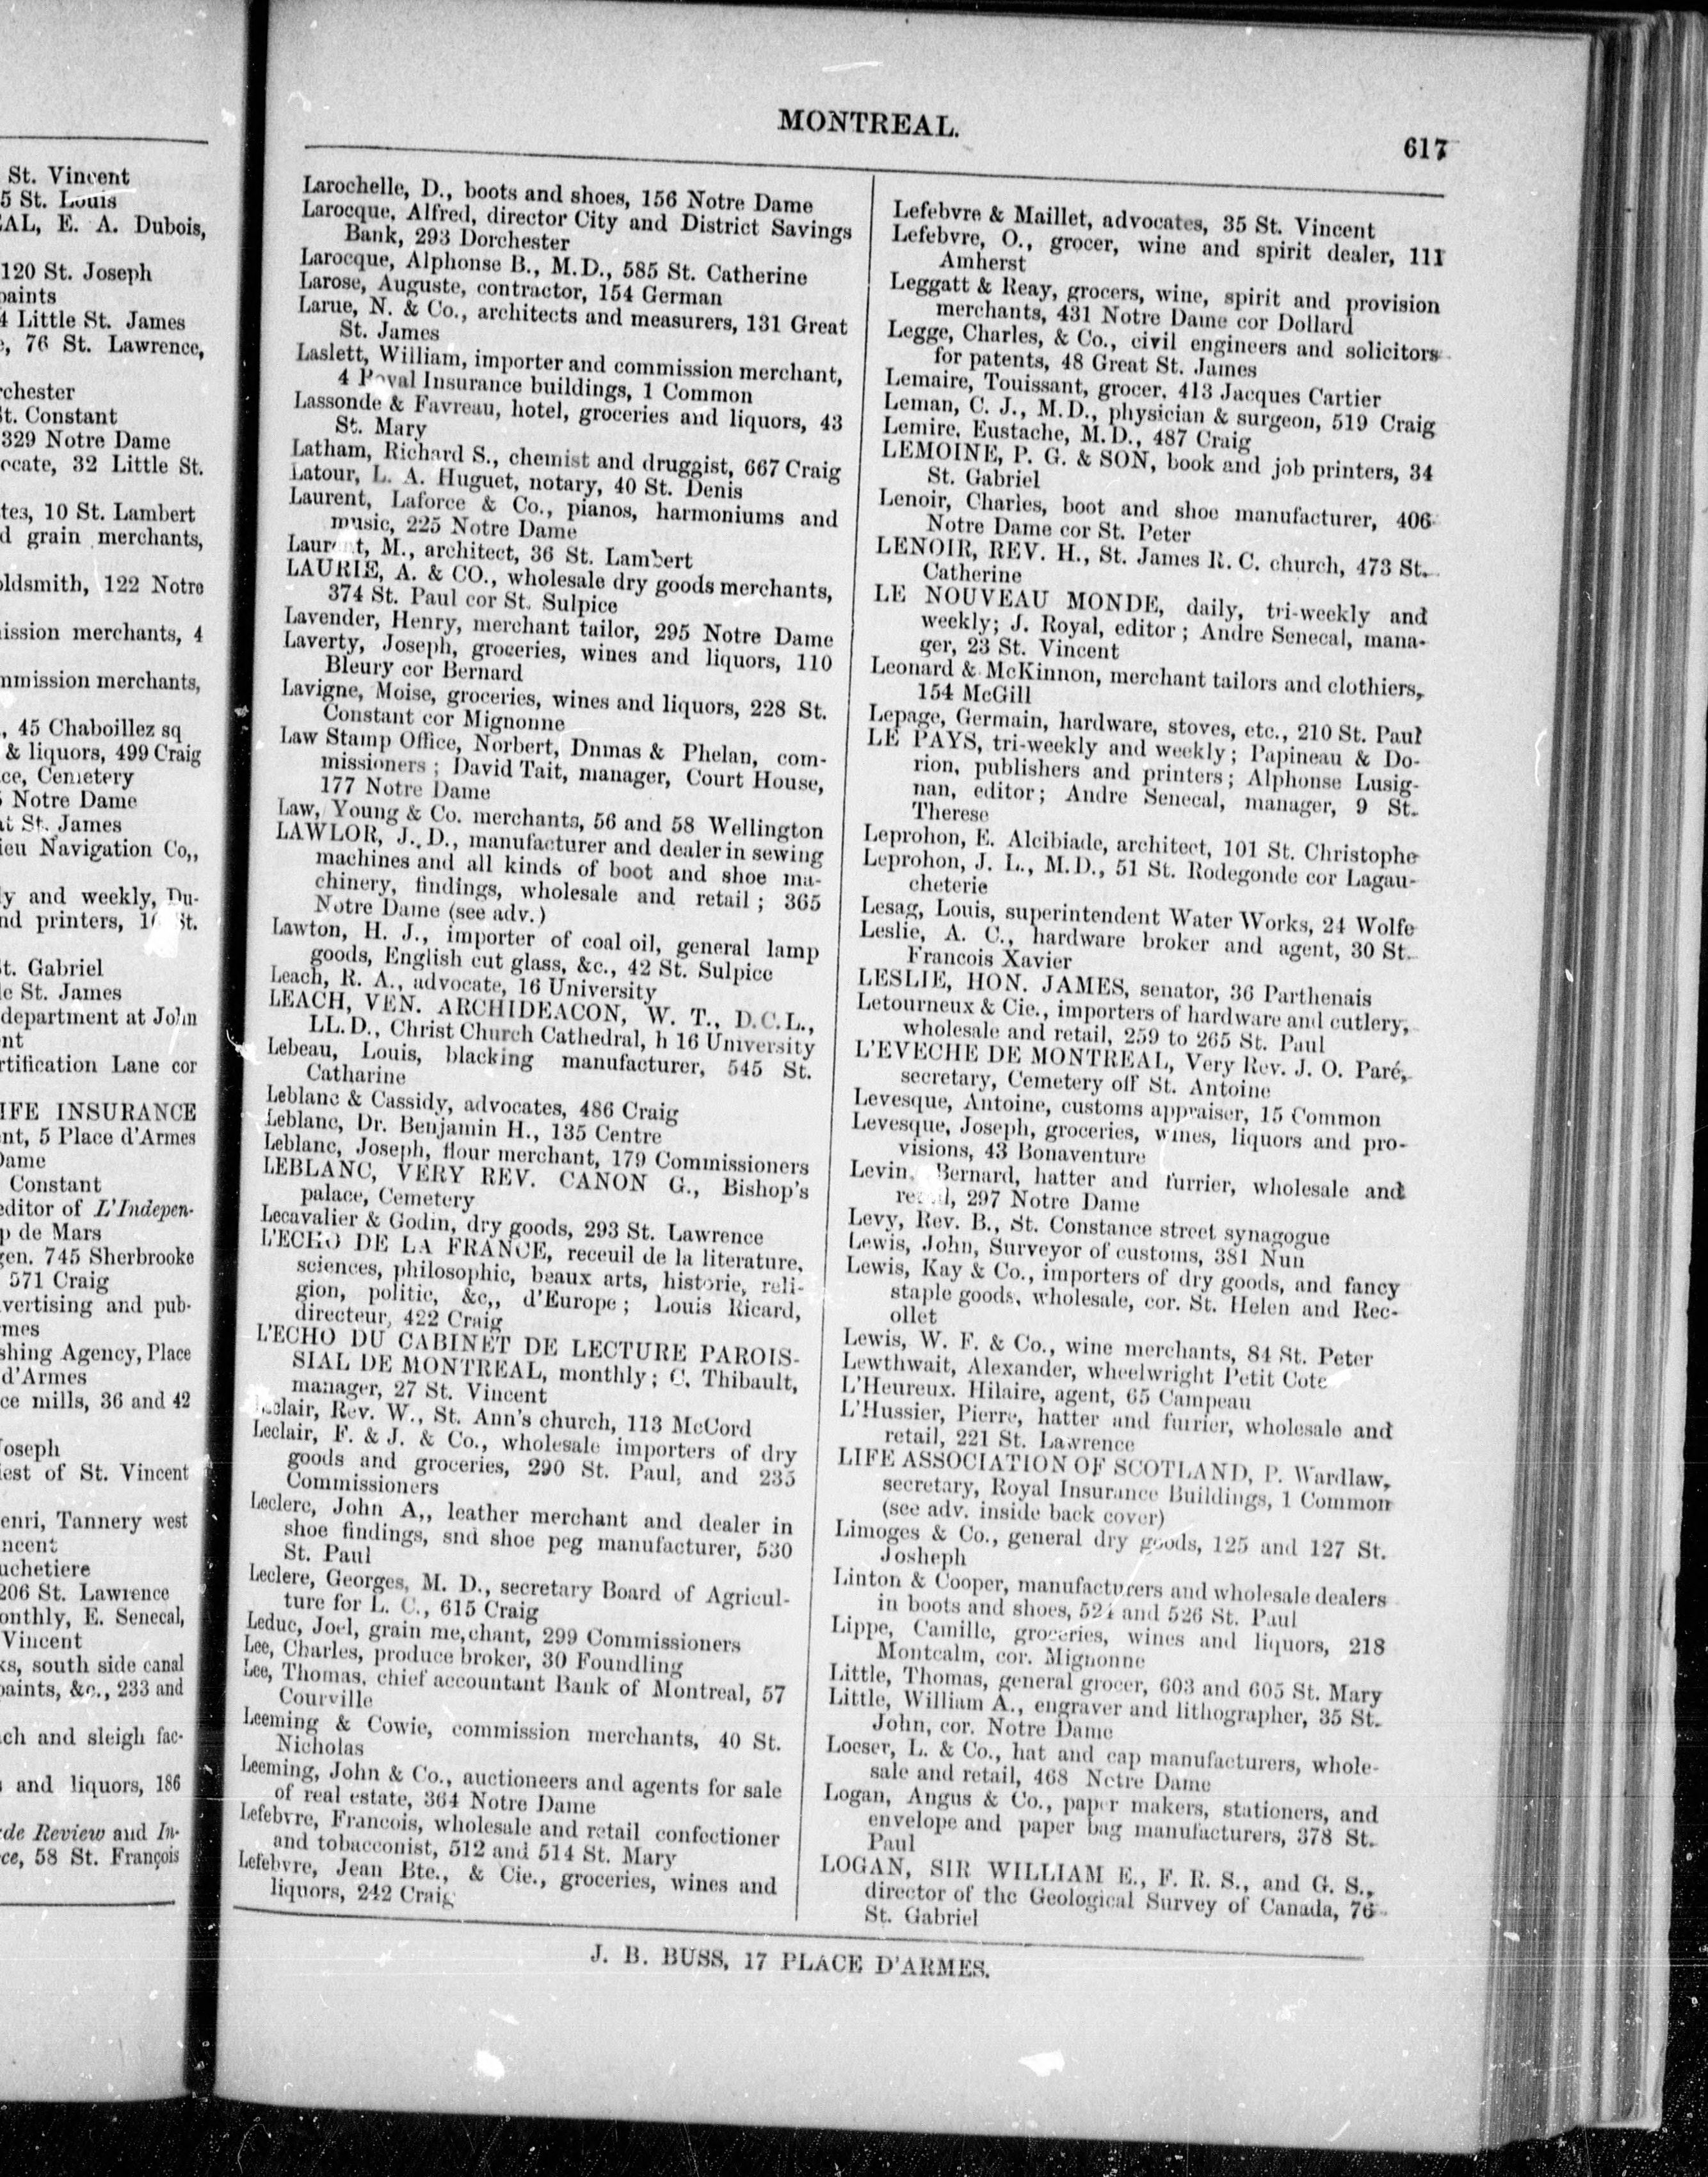 St. Vincent
5 St. Louis
AL, E. A. Dubois,
120 St. Joseph
paints
4 Little St. James
, 76 St. Lawrence,
rchester
St. Constant
329 Notre Dame
ocate, 32 Little St.
tes, 10 St. Lambert
d grain merchants,
oldsmith, 122 Notre
ission merchants, 4
mmission merchants,
, 45 Chaboillez sq
& liquors, 499 Craig
ce, Cemetery
Notre Dame
at St. James
ieu Navigation Co,,
ly and weekly, Du-
nd printers, St.
St. Gabriel
le St. James
department at John
nt
rtification Lane cor
IFE INSURANCE
nt, 5 Place d'Armes
Dame
Constant
editor of L'Indepen-
p de Mars
gen. 745 Sherbrooke
571 Craig
vertising and pub-
mes
shing Agency, Place
d'Armes
ce mills, 36 and 42
Joseph
iest of St. Vincent
enri, Tannery west
ncent
uchetiere
206 St. Lawrence
onthly, E. Senecal,
Vincent
ks, south side canal
paints, &c., 233 and
ch and sleigh fac-
and liquors, 186
de Review and In-
ce, 58 St. François
MONTREAL.
617
Larochelle, D., boots and shoes, 156 Notre Dame
Larocque, Alfred, director City and District Savings
Bank, 293 Dorchester
Larocque, Alphonse B., M.D., 585 St. Catherine
Larose, Auguste, contractor, 154 German
Larue, N. & Co., architects and measurers, 131 Great
St. James
Laslett, William, importer and commission merchant,
4 Royal Insurance buildings, 1 Common
Lassonde & Favreau, hotel, groceries and liquors, 43
St. Mary
Latham, Richard S., chemist and druggist, 667 Craig
Latour, L. A. Huguet, notary, 40 St. Denis
Laurent, Laforce & Co., pianos, harmoniums and
music, 225 Notre Dame
Laurent, M., architect, 36 St. Lambert
LAURIE, A. & CO., wholesale dry goods merchants,
374 St. Paul cor St. Sulpice
Lavender, Henry, merchant tailor, 295 Notre Dame
Laverty, Joseph, groceries, wines and liquors, 110
Bleury cor Bernard
Lavigne, Moise, groceries, wines and liquors, 228 St.
Constant cor Mignonne
Law Stamp Office, Norbert, Dnmas & Phelan, com-
missioners ; David Tait, manager, Court House,
177 Notre Dame
Law, Young & Co. merchants, 56 and 58 Wellington
LAWLOR, J. D., manufacturer and dealer in sewing
machines and all kinds of boot and shoe ma-
chinery, findings, wholesale and retail ; 365
Notre Dame (see adv.)
Lawton, H. J., importer of coal oil, general lamp
goods, English cut glass, &c., 42 St. Sulpice
Leach, R. A., advocate, 16 University
LEACH, VEN. ARCHIDEACON, W. T., D.C.L.,
LL.D., Christ Church Cathedral, h 16 University
Lebeau, Louis, blacking manufacturer, 545 St.
Catharine
Leblanc & Cassidy, advocates, 486 Craig
Leblanc, Dr. Benjamin H., 135 Centre
Leblanc, Joseph, flour merchant, 179 Commissioners
LEBLANC, VERY REV. CANON G., Bishop's
palace, Cemetery
Lecavalier & Godin, dry goods, 293 St. Lawrence
L'ECHO DE LA FRANCE, receuil de la literature,
sciences, philosophic, beaux arts, historie, reli-
gion, politic, &c,, d'Europe ; Louis Ricard,
directeur, 422 Craig
L'ECHO DU CABINET DE LECTURE PAROIS-
SIAL DE MONTREAL, monthly ; C. Thibault,
manager, 27 St. Vincent
Leclair, Rev. W., St. Ann's church, 113 McCord
Leclair, F. & J. & Co., wholesale importers of dry
goods and groceries, 290 St. Paul, and 235
Commissioners
Leclerc, John A,, leather merchant and dealer in
shoe findings, snd shoe peg manufacturer, 530
St. Paul
Leclere, Georges, M. D., secretary Board of Agricul-
ture for L. C., 615 Craig
Leduc, Joel, grain me,chant, 299 Commissioners
Lee, Charles, produce broker, 30 Foundling
Lee, Thomas, chief accountant Bank of Montreal, 57
Courville
Leeming & Cowie, commission merchants, 40 St.
Nicholas
Leeming, John & Co., auctioneers and agents for sale
of real estate, 364 Notre Dame
Lefebvre, Francois, wholesale and retail confectioner
and tobacconist, 512 and 514 St. Mary
Lefebvre, Jean Bte., & Cie., groceries, wines and
liquors, 242 Craig
Lefebvre & Maillet, advocates, 35 St. Vincent
Lefebvre, O., grocer, wine and spirit dealer, 111
Amherst
Leggatt & Reay, grocers, wine, spirit and provision
merchants, 431 Notre Dame cor Dollard
Legge, Charles, & Co., civil engineers and solicitors
for patents, 48 Great St. James
Lemaire, Touissant, grocer, 413 Jacques Cartier
Leman, C. J., M.D., physician & surgeon, 519 Craig
Lemire, Eustache, M.D., 487 Craig
LEMOINE, P. G. & SON, book and job printers, 34
St. Gabriel
Lenoir, Charles, boot and shoe manufacturer, 406
Notre Dame cor St. Peter
LENOIR, REV. H., St. James R. C. church, 473 St.
Catherine
LE NOUVEAU MONDE, daily, tri-weekly and
weekly; J. Royal, editor ; Andre Senecal, mana-
ger, 23 St. Vincent
Leonard & McKinnon, merchant tailors and clothiers,
154 McGill
Lepage, Germain, hardware, stoves, etc., 210 St. Paul
LE PAYS, tri-weekly and weekly ; Papineau & Do-
rion, publishers and printers ; Alphonse Lusig-
nan, editor ; Andre Senecal, manager, 9 St.
Therese
Leprohon, E. Alcibiade, architect, 101 St. Christophe
Leprohon, J. L., M.D., 51 St. Rodegonde cor Lagau-
cheterie
Lesag, Louis, superintendent Water Works, 24 Wolfe
Leslie, A. C., hardware broker and agent, 30 St.
Francois Xavier
LESLIE, HON. JAMES, senator, 36 Parthenais
Letourneux & Cie., importers of hardware and cutlery,
wholesale and retail, 259 to 265 St. Paul
L'EVECHE DE MONTREAL, Very Rev. J. O. Paré,
secretary, Cemetery off St. Antoine
Levesque, Antoine, customs appraiser, 15 Common
Levesque, Joseph, groceries, wines, liquors and pro-
visions, 43 Bonaventure
Levin, Bernard, hatter and furrier, wholesale and
retail, 297 Notre Dame
Levy, Rev. B., St. Constance street synagogue
Lewis, John, Surveyor of customs, 381 Nun
Lewis, Kay & Co., importers of dry goods, and fancy
staple goods, wholesale, cor. St. Helen and Rec-
ollet
Lewis, W. F. & Co., wine merchants, 84 St. Peter
Lewthwait, Alexander, wheelwright Petit Cote
L'Heureux. Hilaire, agent, 65 Campeau
L'Hussier, Pierre, hatter and furrier, wholesale and
retail, 221 St. Lawrence
LIFE ASSOCIATION OF SCOTLAND, P. Wardlaw,
secretary, Royal Insurance Buildings, 1 Common
(see adv. inside back cover)
Limoges & Co., general dry goods, 125 and 127 St.
Josheph
Linton & Cooper, manufacturers and wholesale dealers
in boots and shoes, 524 and 526 St. Paul
Lippe, Camille, groceries, wines and liquors, 218
Montcalm, cor. Mignonne
Little, Thomas, general grocer, 603 and 605 St. Mary
Little, William A., engraver and lithographer, 35 St.
John, cor. Notre Dame
Loeser, L. & Co., hat and cap manufacturers, whole-
sale and retail, 468 Notre Dame
Logan, Angus & Co., paper makers, stationers, and
envelope and paper bag manufacturers, 378 St.
Paul
LOGAN, SIR WILLIAM E., F. R. S., and G. S.,
director of the Geological Survey of Canada, 76
St. Gabriel
J. B. BUSS, 17 PLACE D'ARMES.